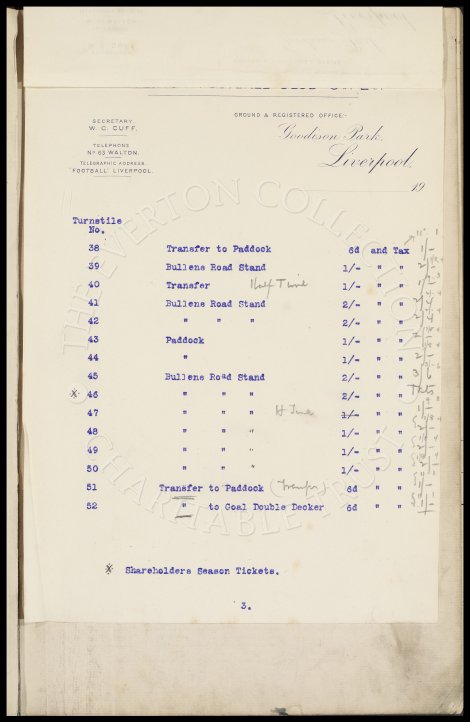 SECRETARY
W. C. CUFF.
TELEPHONE
No 63 WALTON.
TELEGRAPHIC ADDRESS
"FOOTBALL" LIVERPOOL.
GROUND & REGISTERED OFFICE:-
Goodison Park,
Liverpool,
19
Turnstile
No.
38 Transfer to Paddock 6d and Tax
39 Bullens Road Stand 1/- " "
40 Transfer Half Time 1/- " "
41 Bullens Road Stand 2/- " "
42 " " " 2/- " "
43 Paddock 1/- " "
44 " 1/- " "
45 Bullens Road Stand 2/- " "
※ 46 " " " 2/- " "
47 " " " H Time 1/- " "
48 " " " 1/- " "
49 " " " 1/- " "
50 " " " 1/- " "
51 Transfer to Paddock (Transfer) 6d " "
52 " to Goal Double Decker 6d " "
※ Shareholders Season Tickets.
3.
THE EVERTON COLLECTION
CHARITABLE TRUST